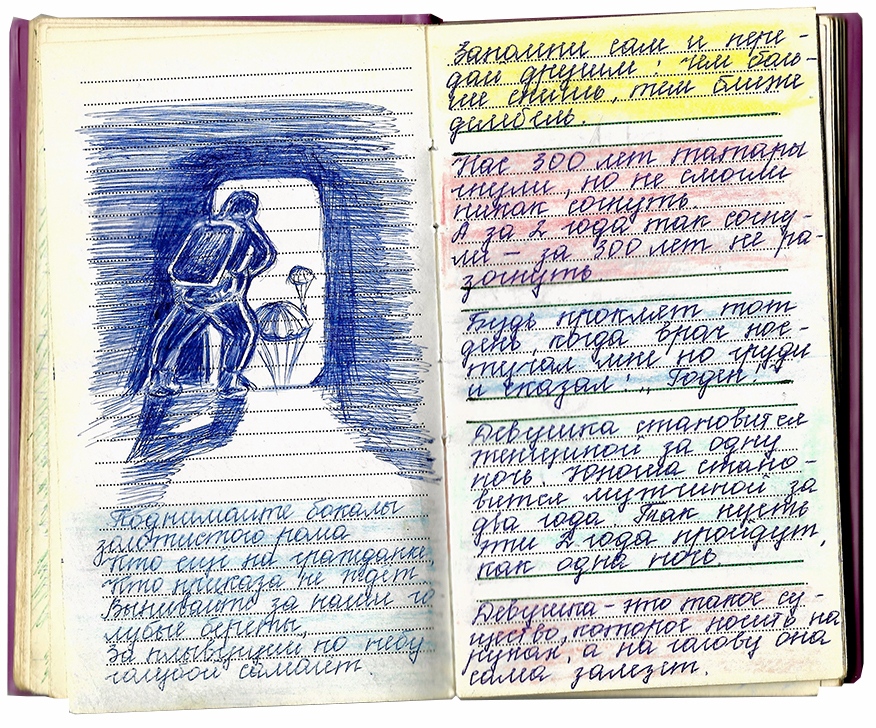 Поднимайте бокалы
золотистого рома
Кто еще на гражданке,
Кто приказа не ждет.
Выпивайте за наши го
лубые береты,
За плывущий по небу
голубой самолет
Запомни сам и пере-
дай другим: чем боль-
ше спишь, тем ближе
дембель.
Нас 300 лет татары
гнули, но не смогли
никак согнуть.
А за 2 года так согну-
ли – за 300 лет не ра-
зогнуть
Будь проклят тот
день, когда врач пос-
тучал мне по груди
и сказал: „Годен!"
Девушка становится
женщиной за одну
ночь. Юноша стано-
вится мужчиной за
два года. Так пусть
эти 2 года пройдут,
как одна ночь.
Девушка – это такое су-
щество, которое носить на
руках, а на голову она
сама залезет.